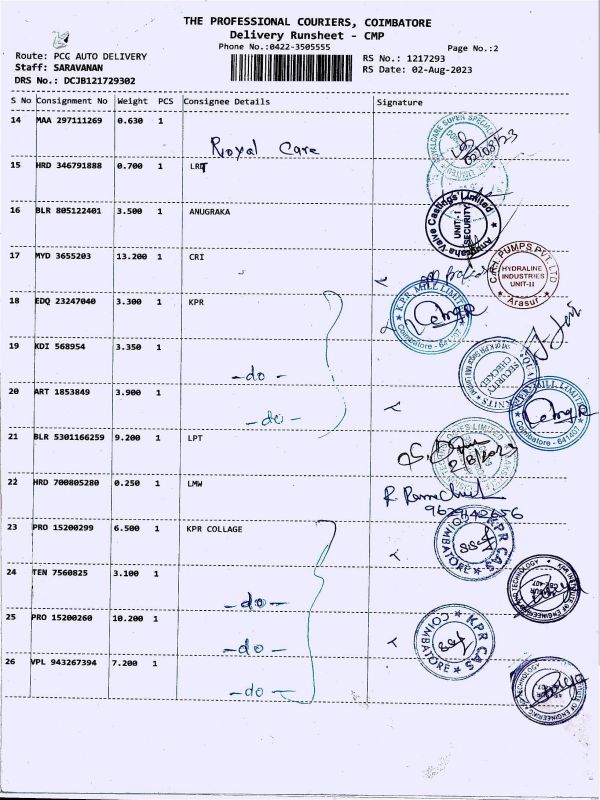 THE PROFESSIONAL COURIERS, COIMBATORE
Delivery Runsheet - CMP
Phone No.:0422-3505555
Page No.:2
Route: PCG AUTO DELIVERY
RS No.: 1217293
Staff: SARAVANAN
RS Date: 02-Aug-2023
DRS No.: DCJB121729302
S No Consignment No Weight PCS Consignee Details Signature
14 MAA 297111269 0.630 1
Royal Care
02/08/23
15 HRD 346791888 0.700 1 LRT
16 BLR 805122401 3.500 1 ANUGRAKA
Valve Castings Limited
UNIT-I
SECURITY
17 MYD 3655203 13.200 1 CRI
C.R.I. PUMPS PVT.LTD
HYDRALINE
INDUSTRIES
UNIT-II
Arasur
18 EDQ 23247040 3.300 1 KPR
K.P.R. MILL LIMITED
Coimbatore - 641407
19 KDI 568954 3.350 1
-do-
SECURITY
CHECKED
20 ART 1853849 3.900 1
-do-
MILL LIMITED
Coimbatore - 641407
21 BLR 5301166259 9.200 1 LPT
2/8/2023
22 HRD 700805280 0.250 1 LMW
23 PRO 15200299 6.500 1 KPR COLLAGE
KPR CAS
COIMBATORE
24 TEN 7560825 3.100 1
-do-
25 PRO 15200260 10.200 1
-do-
KPR CAS
COIMBATORE
26 VPL 943267394 7.200 1
-do-